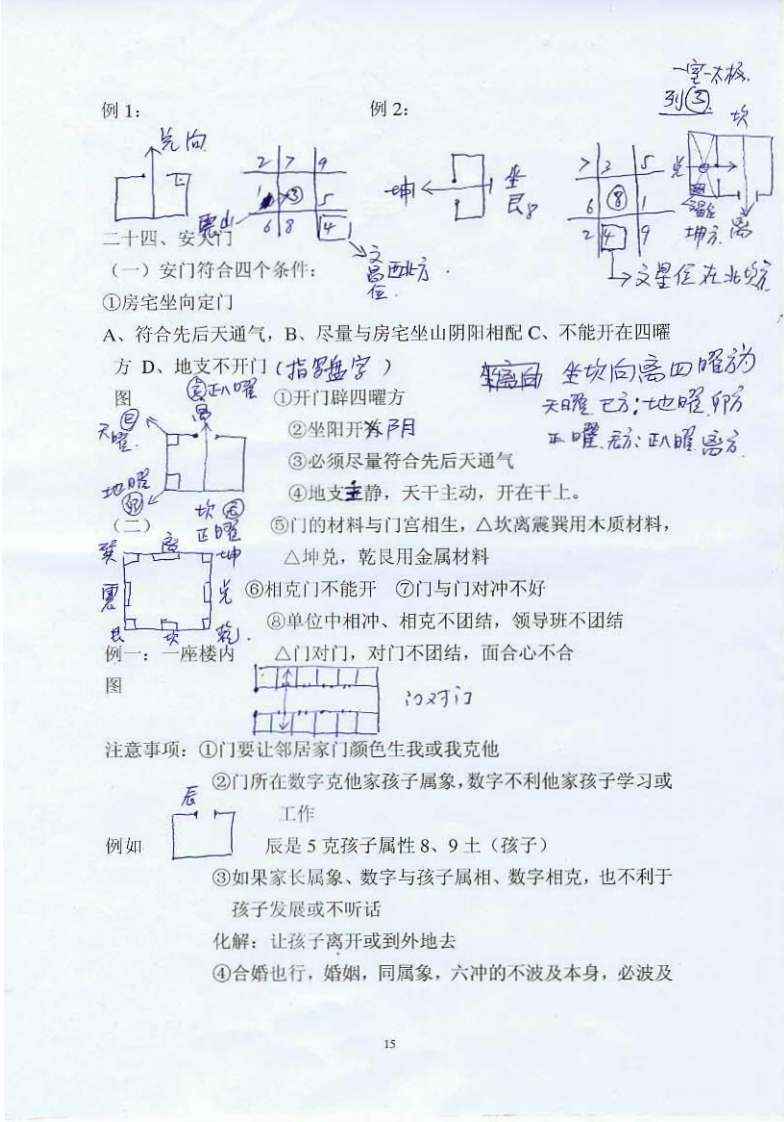 一室一太极
例1：
例2：
列③
坎
兑向
2 7 9
1 ③ 5
6 8 4
震山
坤
坐
艮8
7 3 5
6 ⑧ 1
2 4 9
兑
坤方
离
二十四、安大门
文
昌西北方
位.
文星位在北坎方
（一）安门符合四个条件：
①房宅坐向定门
A、符合先后天通气，B、尽量与房宅坐山阴阳相配 C、不能开在四曜
方 D、地支不开门(指罗盘字)
坐坎向离四曜方为
图
正八曜
离
①开门辟四曜方
天曜 巳方；地曜卯方
天曜
巳
②坐阳开阴
正曜 辰方；正八曜 离方
③必须尽量符合先后天通气
地曜
卯
④地支主静，天干主动，开在干上。
坎 辰
正曜
（二）
⑤门的材料与门宫相生，△坎离震巽用木质材料，
巽 离 坤
△坤兑，乾艮用金属材料
震 兑
⑥相克门不能开 ⑦门与门对冲不好
⑧单位中相冲、相克不团结，领导班不团结
艮 坎 乾
例一：一座楼内
△门对门，对门不团结，面合心不合
图
门对门
注意事项：①门要让邻居家门颜色生我或我克他
②门所在数字克他家孩子属象，数字不利他家孩子学习或
工作
辰
例如
辰是 5 克孩子属性 8、9 土（孩子）
③如果家长属象、数字与孩子属相、数字相克，也不利于
孩子发展或不听话
化解：让孩子离开或到外地去
④合婚也行，婚姻，同属象，六冲的不波及本身，必波及
15